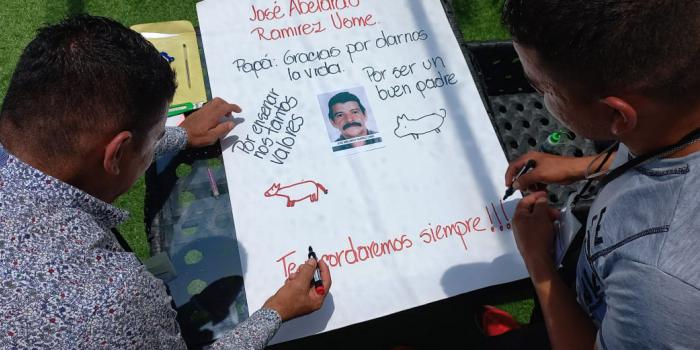 José Abelardo
Ramirez Usme.
Papá: Gracias por darnos
la vida.
Por ser un
buen padre
Por enseñar
nos tantos
valores
Te recordaremos siempre!!!